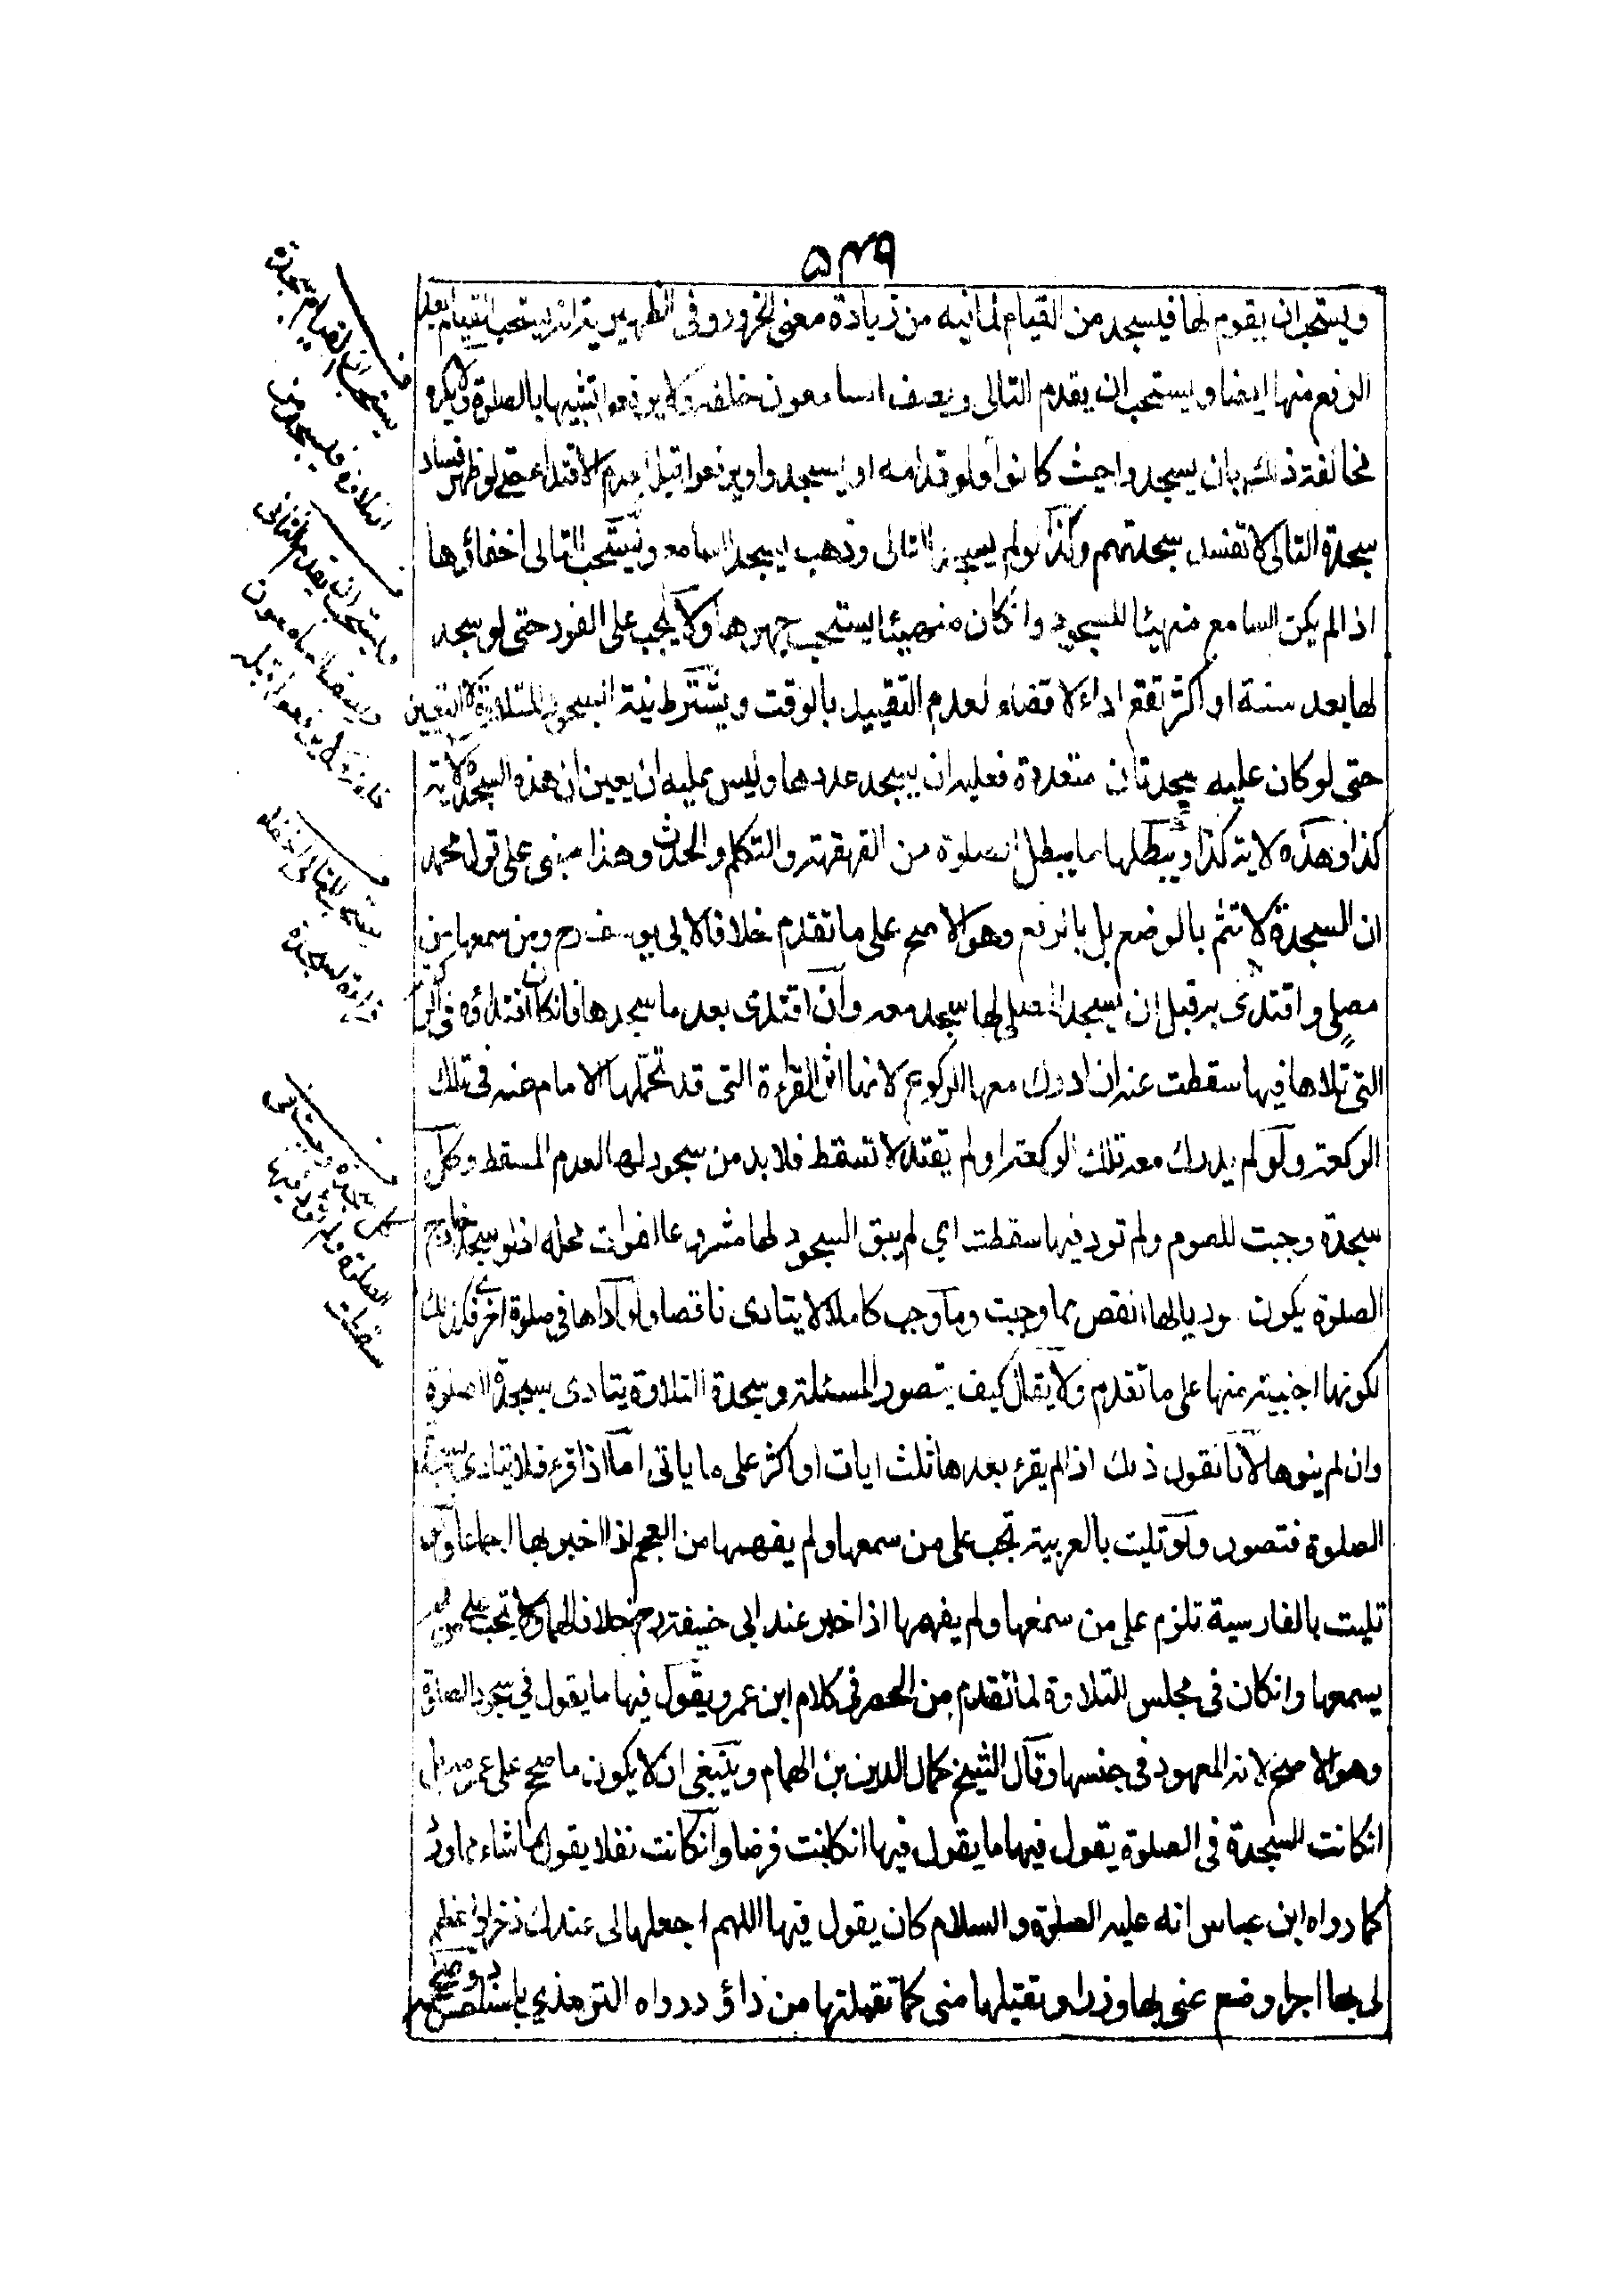 ۵۴۹
ويستحب ان يقوم لها فيسجد من القيام لما فيه من زيادة معنى الخرور وفى الظهيرية انه يستحب القيام بعد
الرفع منها ايضا ويستحب ان يقدم التالى ويصف السامعون خلفه ولا يرفعوا تشبيها بالصلوة ولا يكره
مخالفة ذلك بان يسجدوا حيث كانوا ولو قدامه او يسجدوا ويرفعوا قبله لعدم الاقتداء حتى لو ظهر فساد
سجدة التالى لا تفسد سجدتهم وكذا لو لم يسجد التالى وذهب يسجد السامع ويستحب للتالى اخفاؤها
اذا لم يكن السامع متهيئا للسجود وانكان متهيئا يستحب جهرها ولا يجب على الفور حتى لو سجد
لها بعد سنة او اكثر تقع اداء لا قضاء لعدم التقييد بالوقت ويشترط نية السجود للتلاوة لا التعيين
حتى لو كان عليه سجدتان متعددة فعليه ان يسجد عددها وليس عليه ان يعين ان هذه السجدة لاية
كذا وهذه لاية كذا ويبطلها ما يبطل الصلوة من القهقهة والتكلم والحدث وهذا مبنى على قول محمد
ان السجدة لا تتم بالوضع بل بالرفع وهو الاصح على ما تقدم خلافا لابى يوسف رح ومن سمعها من
مصلى واقتدى به قبل ان يسجد المصلى لها سجد معه وان اقتدى بعد ما سجدها فانكان اقتداؤه فى الركعة
التى تلاها فيها سقطت عنه ان ادرك معها الركوع لانها اثر القراءة التى قد تحملها الامام عنه فى تلك
الركعة ولو لم يدرك معه تلك الركعة او لم يقتد لا تسقط فلا بد من سجود لها لعدم المسقط وكل
سجدة وجبت للصوم ولم تود فيها سقطت اي لم يبق السجود لها مشروعا لفوات محله اذ لو سجد خارج
الصلوة يكون مودیا لها انقص مما وجبت وما وجب كاملا لا يتادى ناقصا ولو اداها فى صلوة اخرى فكذلك
لكونها اجنبية منها على ما تقدم ولا يقال كيف يتصور المسئلة وسجدة التلاوة يتادى بسجدة الصلوة
وان لم ينوها لانا نقول ذلك اذا لم يقرء بعدها ثلث ايات او اكثر على ما ياتى اما اذا قرء فلا يتادى بسجدة
الصلوة فتصور ولو تليت بالعربية تجب على من سمعها ولم يفهمها من العجم اذا اخبر بها اجماعا ولو
تليت بالفارسية تلزم على من سمعها ولم يفهمها اذا اخبر عند ابى حنيفة رح خلافا لهما ولا تجب على من لم
يسمعها وانكان فى مجلس التلاوة لما تقدم من الحصر فى كلام ابن عمر ويقول فيها ما يقول فى سجود الصلوة
وهو الاصح لانه المعهود فى جنسها وقال الشيخ كمال الدين بن الهمام وينبغى ان لا يكون ما صحح على عمومه بل
انكانت السجدة فى الصلوة يقول فيها ما يقول فيها انكانت فرضا وانكانت نفلا يقول ما شاء مما ورد
كما رواه ابن عباس انه عليه الصلوة والسلام كان يقول فيها اللهم اجعلها لى عندك ذخرا واعظم
لى بها اجرا وضع عنى بها وزرا وتقبلها منى كما تقبلتها من داؤد رواه الترمذي باسناد صحيح
يستحب ان القيام سجدة
التلاوة فيسجد من
ويستحب ان يقدم التالى
ويصف السامعون
خلفه ولا يرفعوا قبله
يستحب للتالى اخفاء
قراءة السجدة
كل سجدة وجبت فى
الصلوة ولم تؤد فيها
سقطت